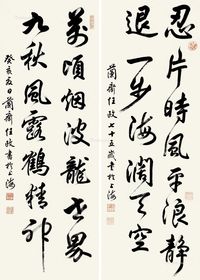 忍片時風平浪靜
退一步海闊天空
蘭齋任政七十五歲書於上海
萬頃烟波龍世界
九秋風露鶴精神
癸亥日蘭齋任政書於上海